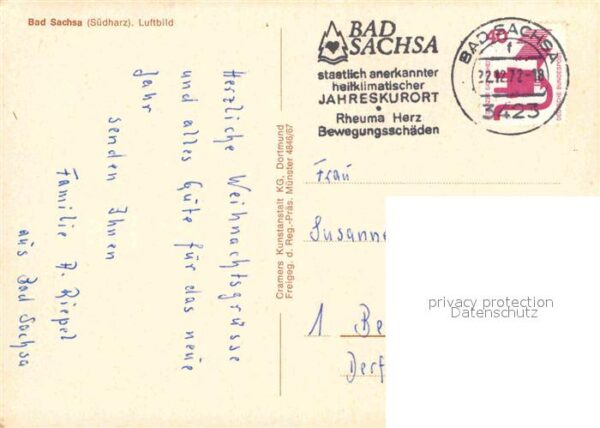 Bad Sachsa (Südharz). Luftbild
Herzliche Weihnachtsgrüsse
und alles Gute für das neue
Jahr
senden Ihnen
Familie A. Riepel
aus Bad Sachsa
Cramers Kunstanstalt KG, Dortmund
Freigeg. d. Reg.-Präs. Münster 4846/67
BAD
SACHSA
staatlich anerkannter
heilklimatischer
JAHRESKURORT
Rheuma Herz
Bewegungsschäden
BAD SACHSA
f
22.12.72-18
3423
40
Frau
Susanne
1 Be
privacy protection
Datenschutz